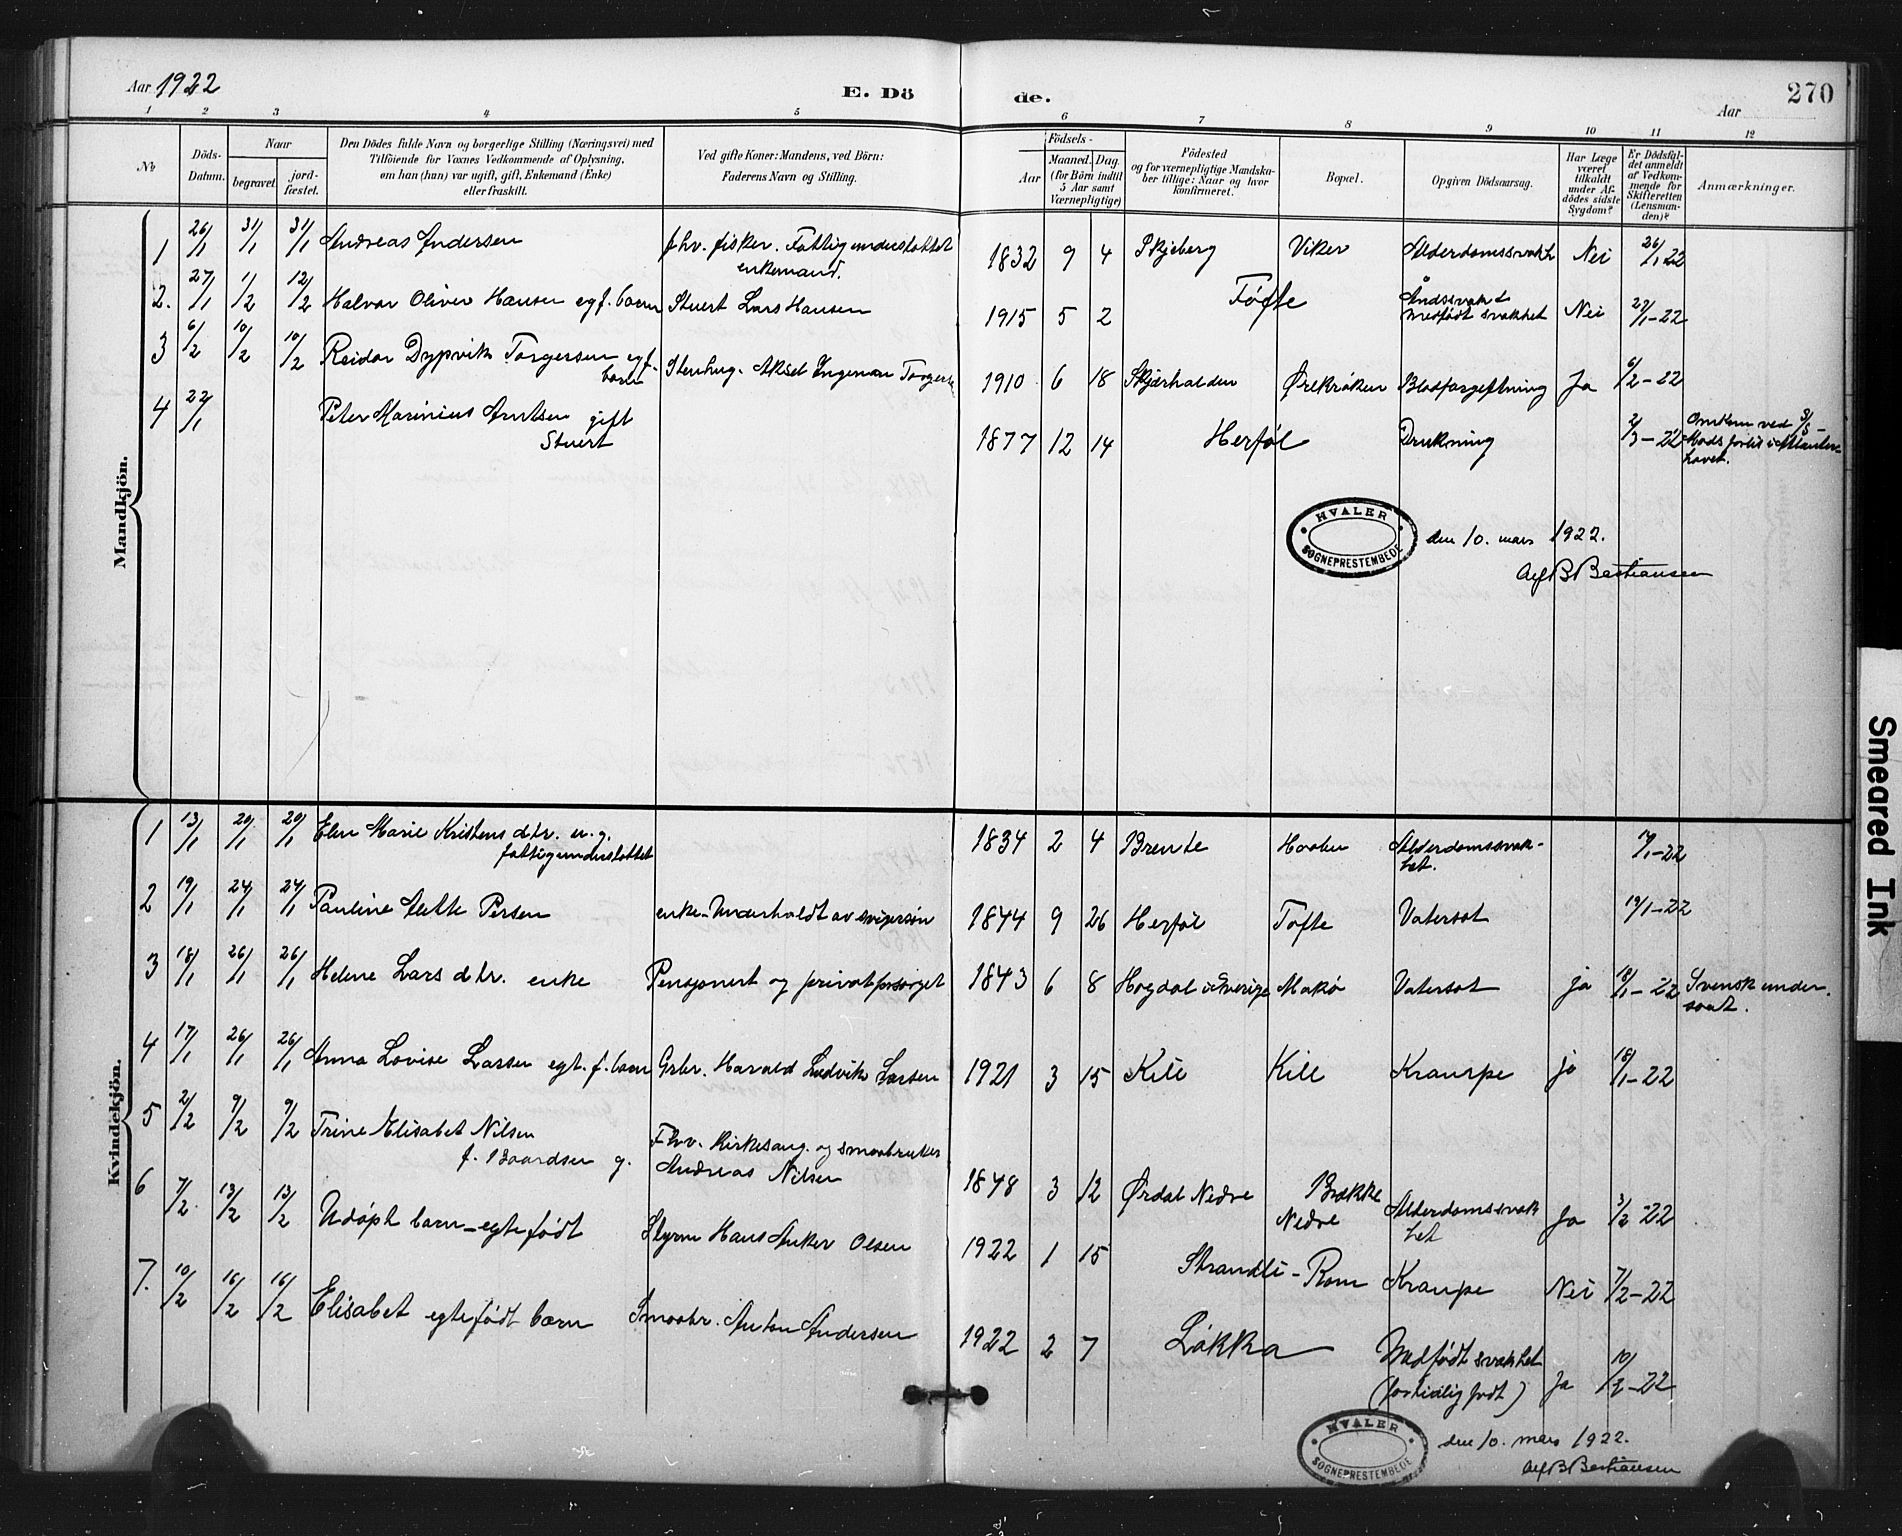 Aar 1922
E. Dö
de.
Aar
270
1 2 3 4 5 6 7 8 9 10 11 12
No
Döds-
Datum.
Naar
begravet.
jord-
fæstet.
Den Dödes fulde Navn og borgerlige Stilling (Næringsvei) med
Tilföiende for Voxnes Vedkommende af Oplysning,
om han (hun) var ugift, gift, Enkemand (Enke)
eller fraskilt.
Ved gifte Koner: Mandens, ved Börn:
Faderens Navn og Stilling.
Födsels-
Aar
Maaned.
Dag.
(for Börn indtil
5 Aar samt
Værnepligtige)
Födested
og for værnepligtige Mandska-
ber tillige: Naar og hvor
konfirmeret.
Bopæl.
Opgiven Dödsaarsag.
Har Læge
været
tilkaldt
under Af-
dödes sidste
Sygdom?
Er Dödsfal-
det anmeldt
af Vedkom-
mende for
Skifteretten
(Lensman-
den)?
Anmærkninger.
Mandkjön.
1 26/1 31/1 31/1 Andreas Andersen fhv. fisker. Fattigunderstøttet
enkemand.
1832 9 4 Skjeberg Viker Alderdomssvakh Nei 26/1 22
2. 27/1 1/2 12/2 Halvor Oliver Hansen egf. barn Stuert Lars Hansen
1915 5 2 Tofte Åndssvakt
medfødt svakhet Nei 27/1-22
3 6/2 10/2 10/2 Reidar Dypvik Torgersen egf.
barn Stenhug. Aksel Ingeman Torgerse
1910 6 18 Skjærhalden Ørekroken Blodforgiftning Ja 6/2-22
4 22/1 Peter Marinius Arntsen gift
Stuert
1877 12 14 Herføl Drukning 2/3-22 Omkom ved S/S
forlis i Atlanter-
havet.
HVALER
SOGNEPRESTEMBEDE
den 10. mars 1922.
Alf B Bastiansen
Kvindekjön.
1 13/1 20/1 20/1 Elen Marie Kristens dtr. u.g.
fattigunderstøttet
1834 2 4 Brente Alderdomssvak-
het. 14/1-22
2 19/1 24/1 24/1 Pauline Mette Persen enke-Underholdt av svigersøn
1844 9 26 Herføl Tofte Vatersot 19/1-22
3 18/1 26/1 26/1 Helene Lars dtr. enke Pensjonert og privatforsørget
1843 6 8 Hogdal i Sverige Makø Vatersot ja 18/1-22 Svensk under.
saat.
4 17/1 26/1 26/1 Anna Lovise Larsen egt. f. barn Grbr. Harald Ludvik Larsen
1921 3 15 Kile Kile Krampe ja 18/1-22
5 2/2 9/2 9/2 Trine Elisabet Nilsen
f. Baardsen g.
Fhv. Kirkesang. og smaabruker
Andreas Nilsen
1848 3 12 Ørdal Nedre Brække
Nedre Alderdomssvak
het Ja 3/2-22
6 7/2 13/2 13/2 Udøpt barn-egtefødt Styrm Hans Anker Olsen
1922 1 15 Strandli-Rom Krampe Nei 7/2-22
7. 10/2 16/2 16/2 Elisabet egtefødt barn Smaabr. Anton Andersen
1922 2 7 Løkka Medfødt svakhet
(for tidlig født) Ja 10/2-22
HVALER
SOGNEPRESTEMBEDE
den 10. mars 1922.
Alf B Bastiansen
Smeared Ink